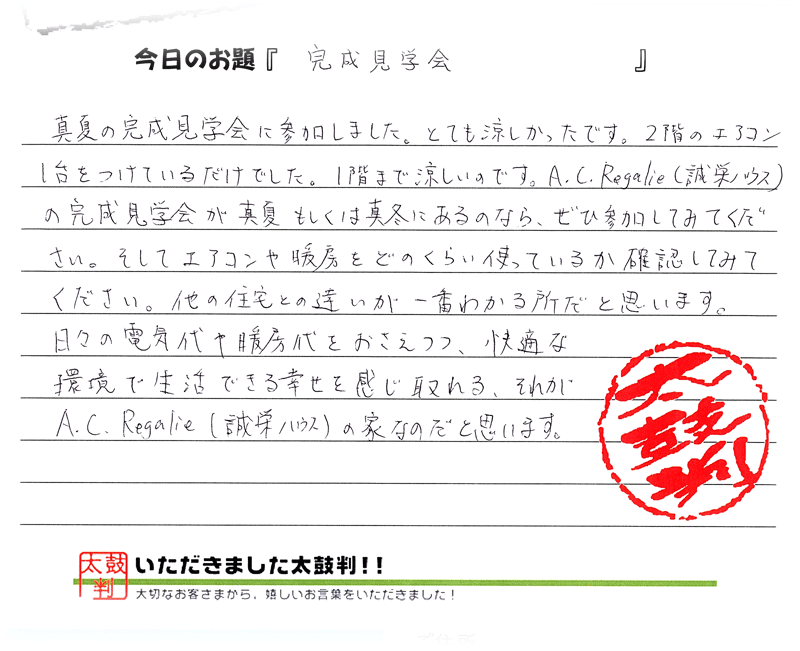 今日のお題『 完成見学会 』
真夏の完成見学会に参加しました。とても涼しかったです。2階のエアコン
1台をつけているだけでした。1階まで涼しいのです。A.C.Regalie(誠栄ハウス)
の完成見学会が真夏もしくは真冬にあるのなら、ぜひ参加してみてくだ
さい。そしてエアコンや暖房をどのくらい使っているか確認してみて
ください。他の住宅との違いが一番わかる所だと思います。
日々の電気代や暖房代をおさえつつ、快適な
環境で生活できる幸せを感じ取れる、それが
A.C.Regalie(誠栄ハウス)の家なのだと思います。
太鼓判
太鼓判
いただきました太鼓判!!
大切なお客さまから、嬉しいお言葉をいただきました!